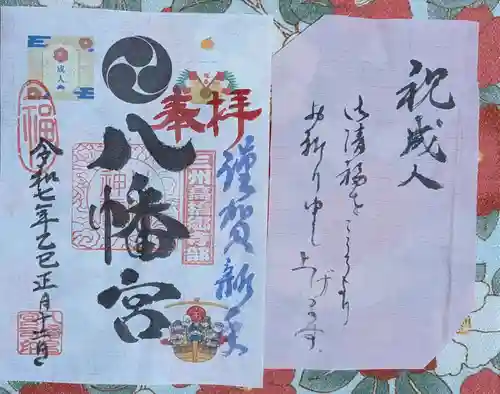 祝成人
御清福をこころより
お祈り申し上げます
謹賀新年
奉拝
八幡宮
成人
福
令和七年乙巳正月十三日